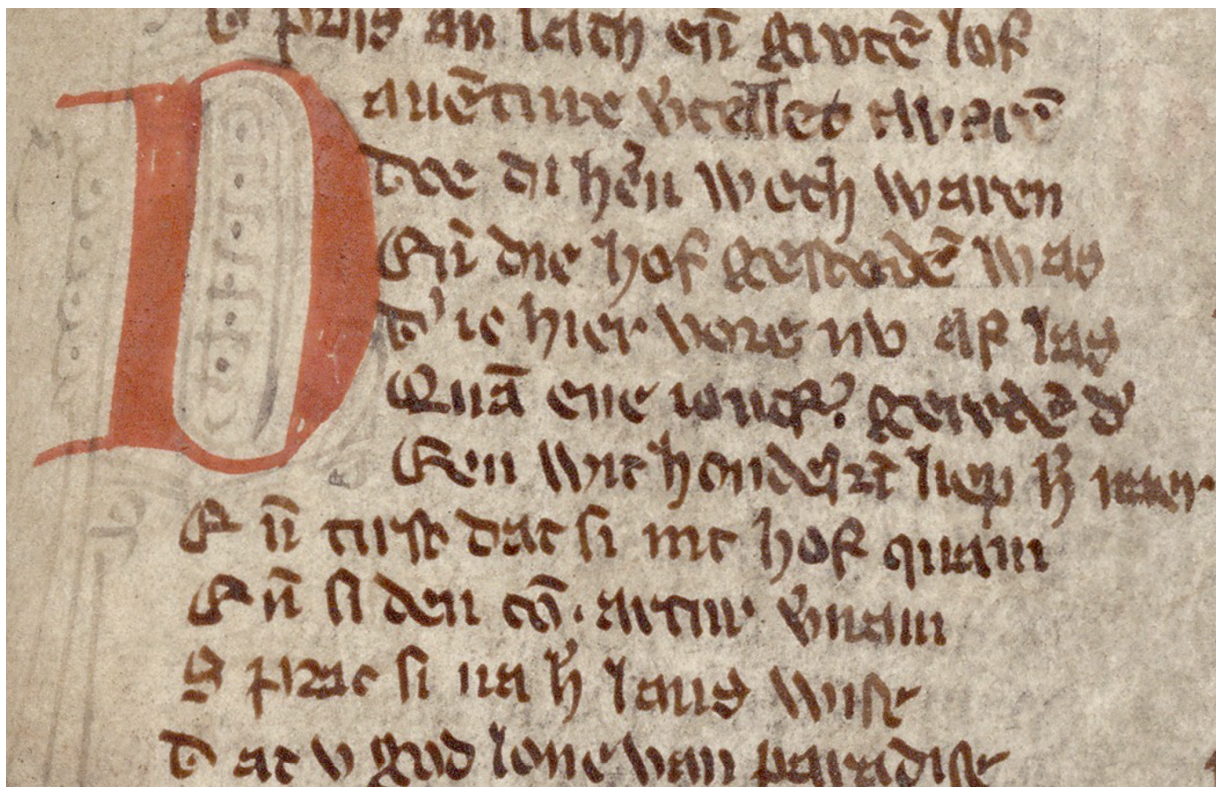 D prijs an lach en̄ grotē lof
D auētiure v̄tellet twarē
Doe di hēn wech waren
En̄ die hof gestedē was
D' ic hier vore nv af las
Quā ene ioncfr. gereden d'
Een wit hondekī liep h' naer
En̄ tirst dat si int hof quam
En̄ si den cō. artur v̄nam
Sprac si na h' lants wise
Dat v god lone van paradise